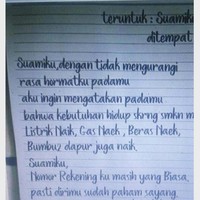 teruntuk : Suamiku
ditempat
Suamiku, dengan tidak mengurangi
rasa hormatku padamu
aku ingin mengatakan padamu
bahwa kebutuhan hidup skrng smkn m
Listrik Naik, Gas Naek, Beras Naek,
Bumbuz dapur juga naik
Suamiku,
Nomor Rekening ku masih yang Biasa,
pasti dirimu sudah paham sayang